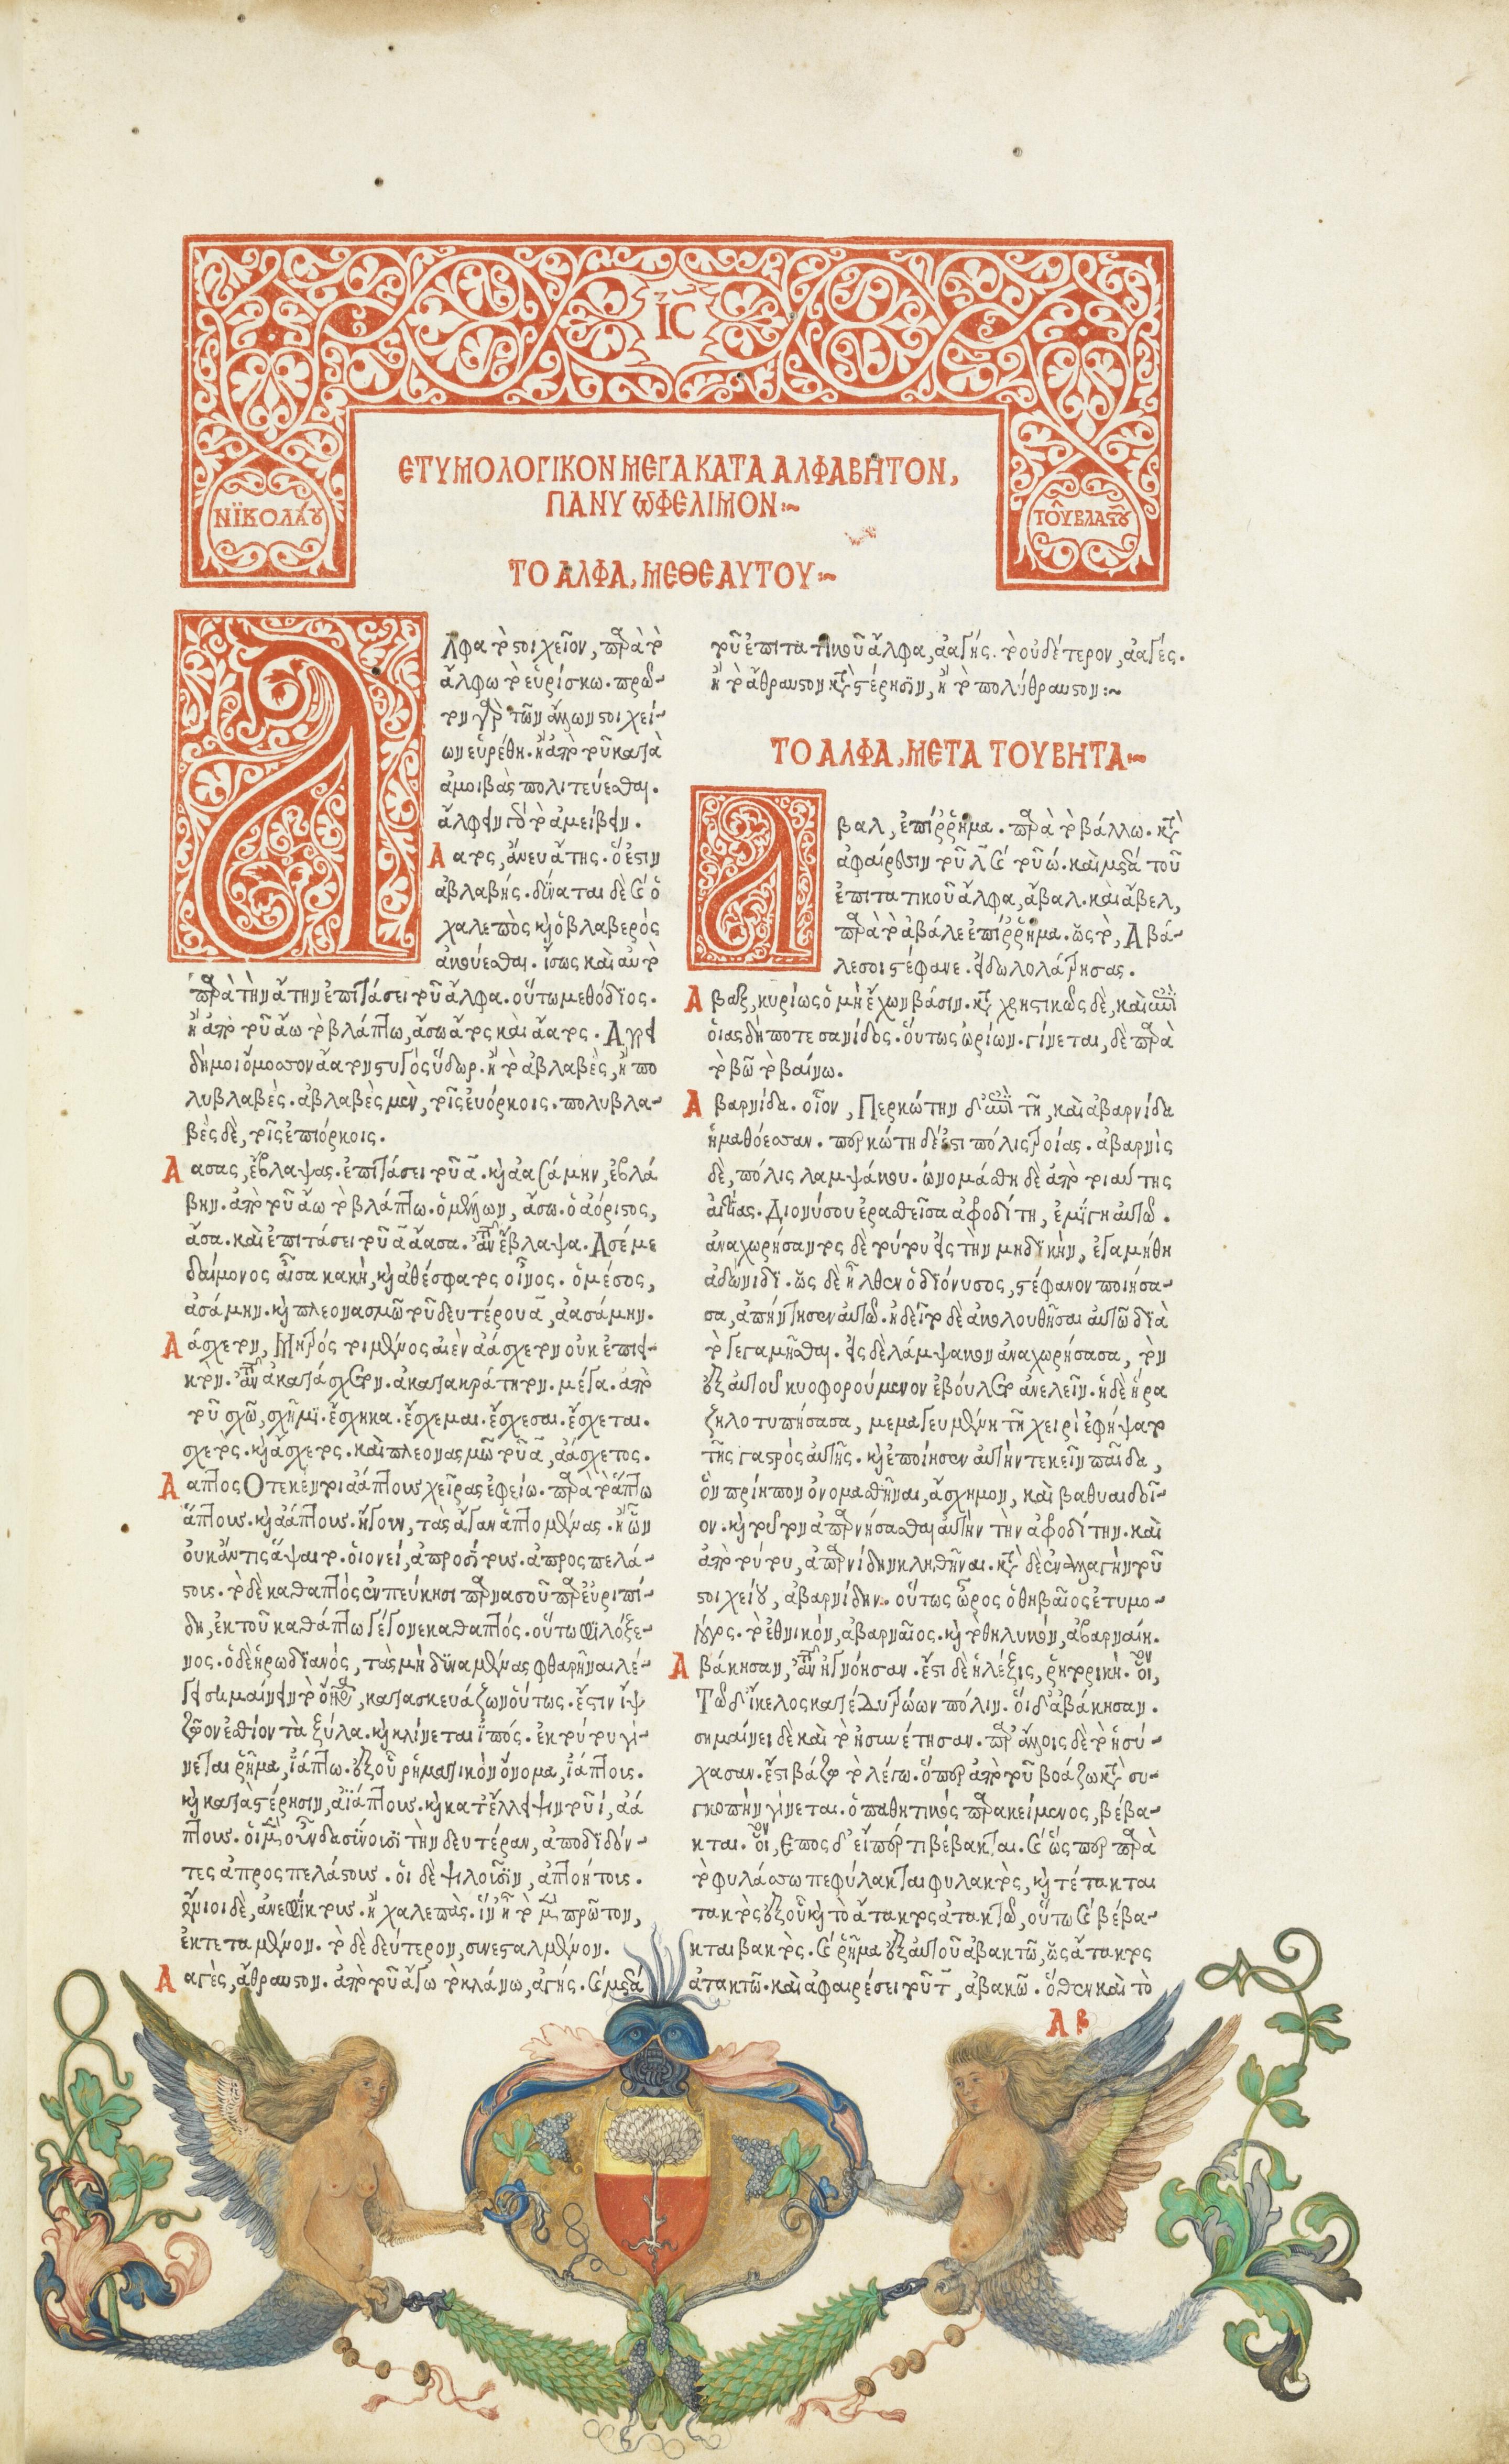 ΙϹ
ΝΪΚΟΛΆΟΥ
ΤΟΥ͂ ΒΛΑΣΤΟΥ͂
ΕΤΥΜΟΛΟΓΙΚΟΝ ΜΕΓΑ ΚΑΤΑ ΑΛΦΑΒΗΤΟΝ,
ΠΑΝΥ ΩΦΕΛΙΜΟΝ:~
ΤΟ ΑΛΦΑ, ΜΕΘ ΕΑΥΤΟΥ:~
Αλφα τὸ στοιχεῖον, παρὰ τὸ
ἄλφω τὸ εὑρίσκω. πρῶ-
τον γὰρ τῶν ἄλλων στοιχεί-
ων εὑρέθη. ἢ ἀπὸ τοῦ κατὰ
ἀμοιβὰς πολιτεύεσθαι.
ἄλφειν γὰρ τὸ ἀμείβειν.
Αατος, ἄνευ ἄτης. ὅ ἐστιν
ἀβλαβής. δύναται δὲ καὶ ὁ
χαλεπὸς καὶ ὁ βλαβερὸς
ἀκούεσθαι. ἴσως καὶ αὐτὸ
παρὰ τὴν ἄτην ἐπιτάσει τοῦ ἄλφα. οὕτω μεθόδϊος.
ἢ ἀπὸ τοῦ ἄω τὸ βλάπτω, ἄσω ἄτος καὶ ἄατος. Αγρει
δή μοι ὄμοσσον ἄατον στυγὸς ὕδωρ. ἢ τὸ ἀβλαβὲς, ἢ πο
λυβλαβές. ἀβλαβὲς μὲν, τοῖς εὐόρκοις. πολυβλα-
βὲς δὲ, τοῖς ἐπιόρκοις.
Αασας, ἔβλαψας. ἐπιτάσει τοῦ α. καὶ ἀασάμην, ἐβλά
βην. ἀπὸ τοῦ ἄω τὸ βλάπτω. ὁ μέλλων, ἄσω. ὁ ἀόριστος,
ἄσα. καὶ ἐπιτάσει τοῦ α ἄασα. ἀντὶ τοῦ ἔβλαψα. Ασέ με
δαίμονος αἶσα κακὴ, καὶ ἀθέσφατος οἶνος. ὁ μέσος,
ἀσάμην. καὶ πλεονασμῶ τοῦ δευτέρου α, ἀασάμην.
Αάσχετον, Μητρός τοι μένος αἰὲν ἀάσχετον οὐκ ἐπιει-
κτόν. ἀντὶ τοῦ ἀκατάσχετον. ἀκατακράτητον. μέγα. ἀπὸ
τοῦ σχῶ, σχῆμϊ. ἔσχηκα. ἔσχεμαι. ἔσχεσαι. ἔσχεται.
σχετὸς. καὶ ἄσχετος. καὶ πλεονασμῶ τοῦ α, ἀάσχετος.
Ααπτος Οτε κέν τοι ἀάπτους χεῖρας ἐφείω. παρὰ τὸ ἅπτω
ἅπτους. καὶ ἀάπτους. ἤγουν, τὰς ἄγαν ἁπτομένας. ἢ ὧν
οὐκ ἄν τις ἅψαιτο. οἱονεὶ, ἀπροσίτους. ἀπροσπελά-
στους. τὸ δὲ καθαπτὸς ἐν πεύκησι παρνασοῦ παρ' εὐριπί-
δη, ἐκ τοῦ καθάπτω γέγονε καθαπτός. οὕτω φιλόξε-
νος. ὁ δὲ ἡρωδϊανὸς, τὰς μὴ δυναμένας φθαρῆναι λέ-
γει σημαίνειν τὸ ὄνομα, κατασκευάζων οὕτως. ἔστιν ἴψ
ζῶον ἐσθίον τὰ ξύλα. καὶ κλίνεται ἰπός. ἐκ τούτου γί-
νεται ῥῆμα, ἰάπτω. ἐξ οὗ ῥηματικὸν ὄνομα, ἴάπτους.
καὶ κατὰ στέρησιν, ἀϊάπτους. καὶ κατ' ἔλλειψιν τοῦ ι, ἀά
πτους. οἱ μὲν οὖν δασύνουσϊ τὴν δευτέραν, ἀποδϊδόν-
τες ἀπροσπελάστους. οἱ δὲ ψιλοῦσϊν, ἀπτοήτους.
ἔνιοι δὲ, ἀνεφίκτους. ἢ χαλεπὰς. ἵν' ᾖ τὸ μὲν πρῶτον,
ἐκτεταμένον. τὸ δὲ δεύτερον, συνεσταλμένον.
Ααγὲς, ἄθραυστον. ἀπὸ τοῦ ἄγω τὸ κλάνω, ἀγής. καὶ μετὰ
τοῦ ἐπιτατικοῦ ἄλφα, ἀαγής. τὸ οὐδέτερον, ἀαγές.
ἢ τὸ ἄθραυστον κατὰ στέρησϊν, ἢ τὸ πολύθραυστον:~
ΤΟ ΑΛΦΑ, ΜΕΤΑ ΤΟΥ ΒΗΤΑ:~
Αβαλ, ἐπίῤῥημα. παρὰ τὸ βάλλω. κατὰ
ἀφαίρεσιν τοῦ λ καὶ τοῦ ω. καὶ μετὰ τοῦ
ἐπιτατικοῦ ἄλφα, ἄβαλ. καὶ ἄβελ,
παρὰ τὸ ἀβάλε ἐπίῤῥημα. ὥς τὸ, Αβά-
λε σοι στέφανε. εἰδωλολάτρησας.
Αβαξ, κυρίως ὁ μὴ ἔχων βάσιν. καταχρηστικῶς δὲ, καὶ ἐπὶ
οἵας δήποτε σανίδος. οὕτως ὠρίων. γίνεται, δὲ παρὰ
τὸ βῶ τὸ βαίνω.
Αβαρνίδα. οἷον, Περκώτην δ' ἐπὶ τῇ, καὶ ἀβαρνίδα
ἠμαθόεσσαν. περκώτη δέ ἐστι πόλις τροίας. ἀβαρνὶς
δὲ, πόλις λαμψάκου. ὠνομάσθη δὲ ἀπὸ τοιαύτης
αἰτίας. Διονύσου ἐρασθεῖσα ἀφροδίτη, ἐμίγη αὐτῶ.
ἀναχωρήσαντος δὲ τούτου εἰς τὴν ἰνδϊκὴν, ἐγαμήθη
ἀδώνιδϊ. ὡς δὲ ἦλθεν ὁ διόνυσος, στέφανον ποιήσα-
σα, ἀπήντησεν αὐτῶ. ᾐδεῖτο δὲ ἀκολουθῆσαι αὐτῶ διὰ
τὸ γεγαμῆσθαι. εἰς δὲ λάμψακον ἀναχωρήσασα, τὸν
ἐξ αὐτοῦ κυοφορούμενον ἐβούλετο ἀνελεῖν. ἡ δὲ ἥρα
ζηλοτυπήσασα, μεμαγευμένη τῇ χειρὶ ἐφήψατο
τῆς γαστρὸς αὐτῆς. καὶ ἐποίησεν αὐτὴν τεκεῖν παῖδα,
ὃν πρίηπον ὀνομασθῆναι, ἄσχημον, καὶ βαθυαιδοῖ-
ον. καὶ τοῦτον ἀπαρνήσασθαι αὐτὴν τὴν ἀφροδίτην. καὶ
ἀπὸ τούτου, ἀπαρνίδην κληθῆναι. κατὰ δὲ ἐναλλαγὴν τοῦ
στοιχείου, ἀβαρνίδην. οὕτως ὦρος ὁ θηβαῖος ἐτυμο-
λόγος. τὸ ἐθνικὸν, ἀβαρναῖος. καὶ τὸ θηλυκὸν, ἀβαρναίη.
Αβάκησαν, ἀντὶ τοῦ ἠγνόησαν. ἔστι δὲ ἡ λέξις, ῥητορική. οἷον,
Τῶ δ' ἴκελος κατέδυ τρώων πόλιν. οἱ δ' ἀβάκησαν.
σημαίνει δὲ καὶ τὸ ἠσυνέτησαν. παρ' ἄλλοις δὲ τὸ ἡσύ-
χασαν. ἔστι βάζω τὸ λέγω. ὅπερ ἀπὸ τοῦ βοάζω κατὰ συ-
γκοπὴν γίνεται. ὁ παθητικὸς παρακείμενος, βέβα-
κται. οἷον, Επος δ' εἴπερ τι βέβακται. καὶ ὥσπερ παρὰ
τὸ φυλάσσω πεφύλακται φυλακτὸς, καὶ τέτακται
τακτὸς ἐξ οὗ καὶ τὸ ἄτακτος ἀτακτῶ, οὕτω καὶ βέβα-
κται βακτὸς. καὶ ῥῆμα ἐξ αὐτοῦ ἀβακτῶ, ὡς ἄτακτος
ἀτακτῶ. καὶ ἀφαιρέσει τοῦ τ, ἀβακῶ. ὅθεν καὶ τὸ
Α β